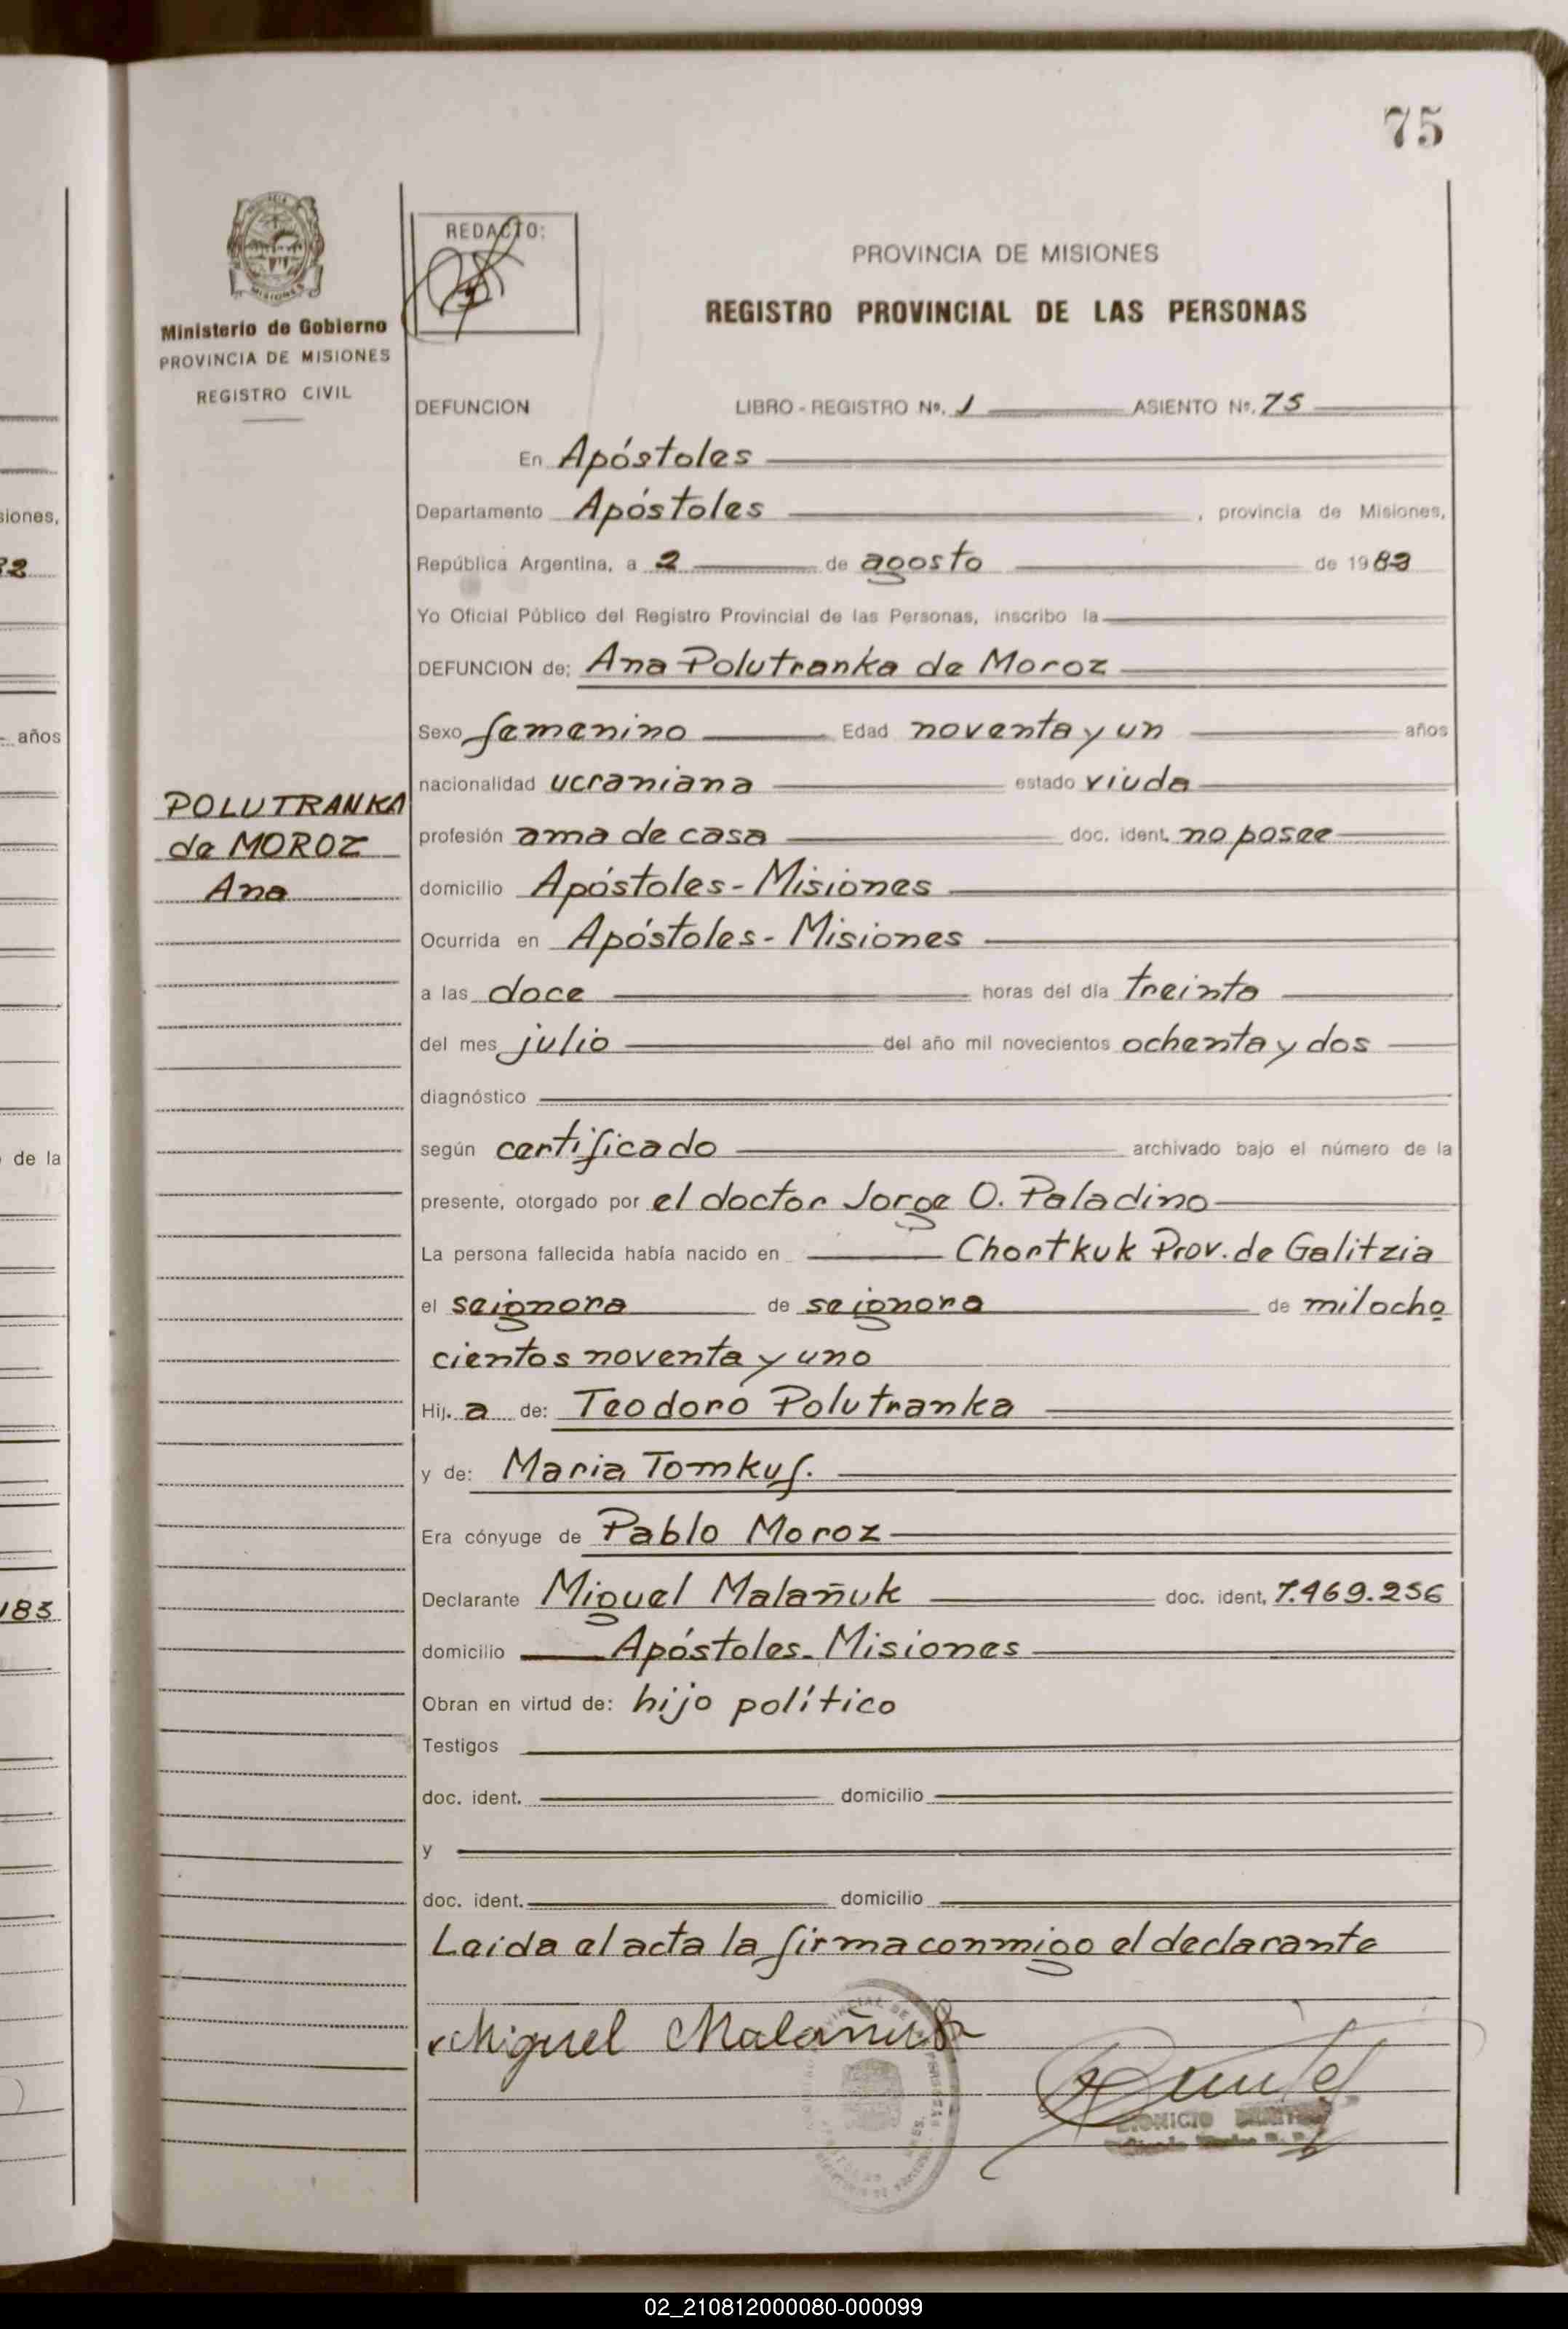 75
REDACTO:
PROVINCIA DE MISIONES
REGISTRO PROVINCIAL DE LAS PERSONAS
Ministerio de Gobierno
PROVINCIA DE MISIONES
REGISTRO CIVIL
DEFUNCION LIBRO - REGISTRO Nº. 1 ASIENTO Nº. 75
En Apóstoles
Departamento Apóstoles, provincia de Misiones,
República Argentina, a 2 de agosto de 1982
Yo Oficial Público del Registro Provincial de las Personas, inscribo la
DEFUNCION de: Ana Polutranka de Moroz
Sexo femenino Edad noventa y un años
nacionalidad ucraniana estado viuda
POLUTRANKA
de MOROZ
Ana
profesión ama de casa doc. ident. no posee
domicilio Apóstoles - Misiones
Ocurrida en Apóstoles - Misiones
a las doce horas del día treinta
del mes julio del año mil novecientos ochenta y dos
diagnóstico
según certificado archivado bajo el número de la
presente, otorgado por el doctor Jorge O. Paladino
La persona fallecida había nacido en Chortkuk Prov. de Galitzia
el seignora de seignora de mil ocho
cientos noventa y uno
Hij. a de: Teodoro Polutranka
y de: Maria Tomkus.
Era cónyuge de Pablo Moroz
Declarante Miguel Malañuk doc. ident. 7.469.256
domicilio Apóstoles - Misiones
Obran en virtud de: hijo político
Testigos
doc. ident. domicilio
y
doc. ident. domicilio
Leida el acta la firma conmigo el declarante
Miguel Malañuk
siones,
años
de la
183
02_210812000080-000099